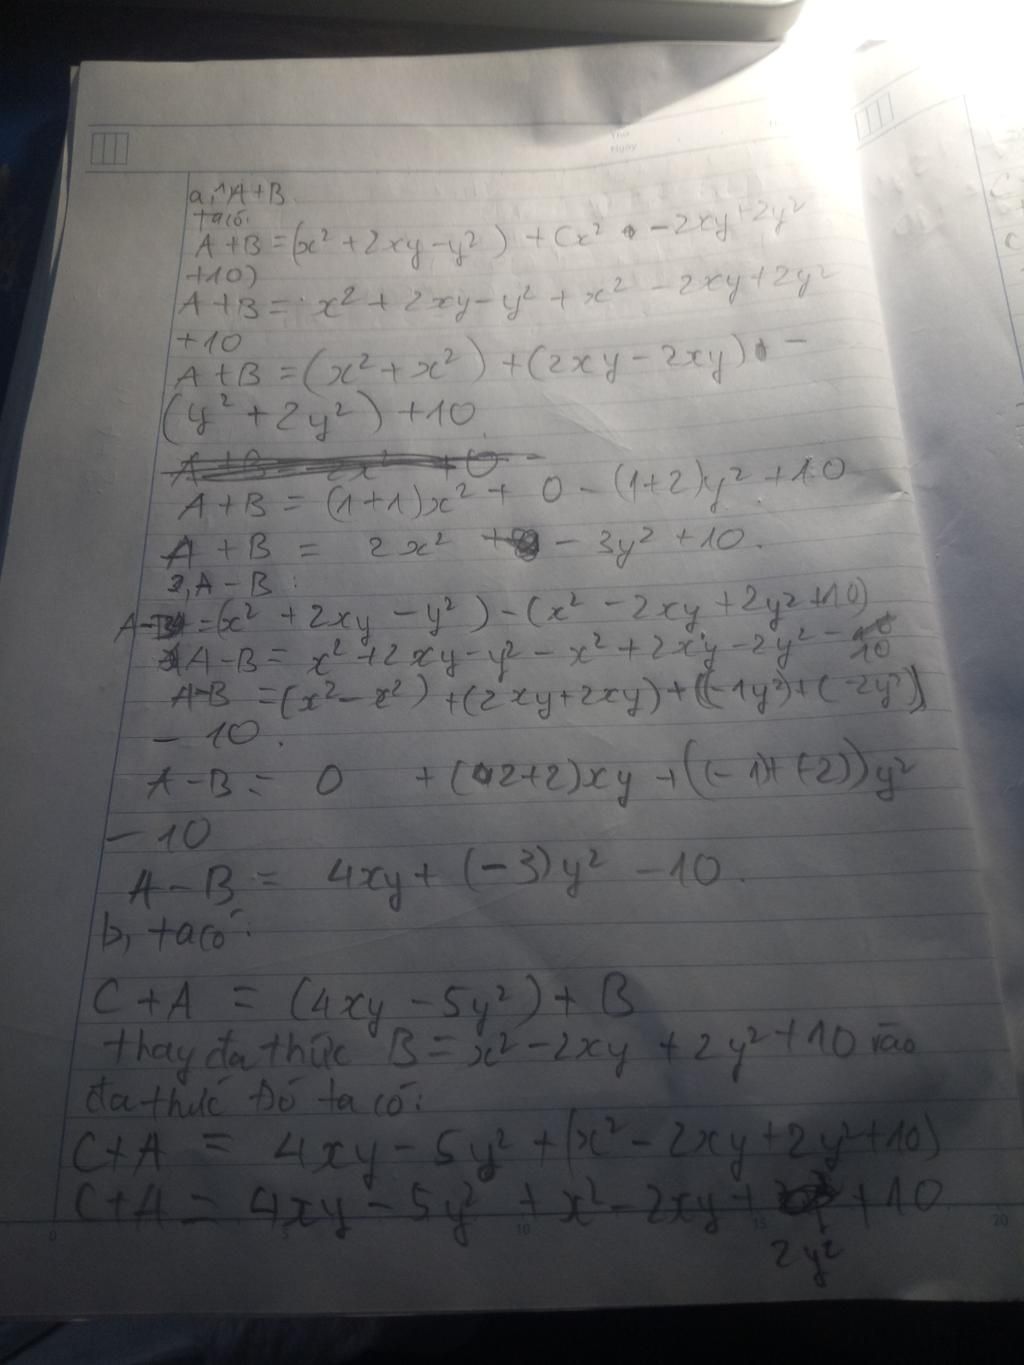 a, 1 A+B.
ta có:
A+B = (x² + 2xy - y²) + (x² - 2xy + 2y²
+10)
A+B = x² + 2xy - y² + x² - 2xy + 2y²
+10
A+B = (x² + x²) + (2xy - 2xy) -
(y² + 2y²) + 10
A+B = (1+1)x² + 0 - (1+2)y² + 10
A+B = 2x² - 3y² + 10.
2, A-B:
A-B = (x² + 2xy - y²) - (x² - 2xy + 2y² + 10)
A-B = x² + 2xy - y² - x² + 2xy - 2y² - 10
A-B = (x² - x²) + (2xy + 2xy) + ((-1y²) + (-2y²))
- 10.
A-B = 0 + (2+2)xy + ((-1)+(-2))y²
- 10
A-B = 4xy + (-3)y² - 10.
b, ta có:
C+A = (4xy - 5y²) + B
thay đa thức B = x² - 2xy + 2y² + 10 vào
đa thức đó ta có:
C+A = 4xy - 5y² + (x² - 2xy + 2y² + 10)
C+A = 4xy - 5y² + x² - 2xy + 2y² + 10